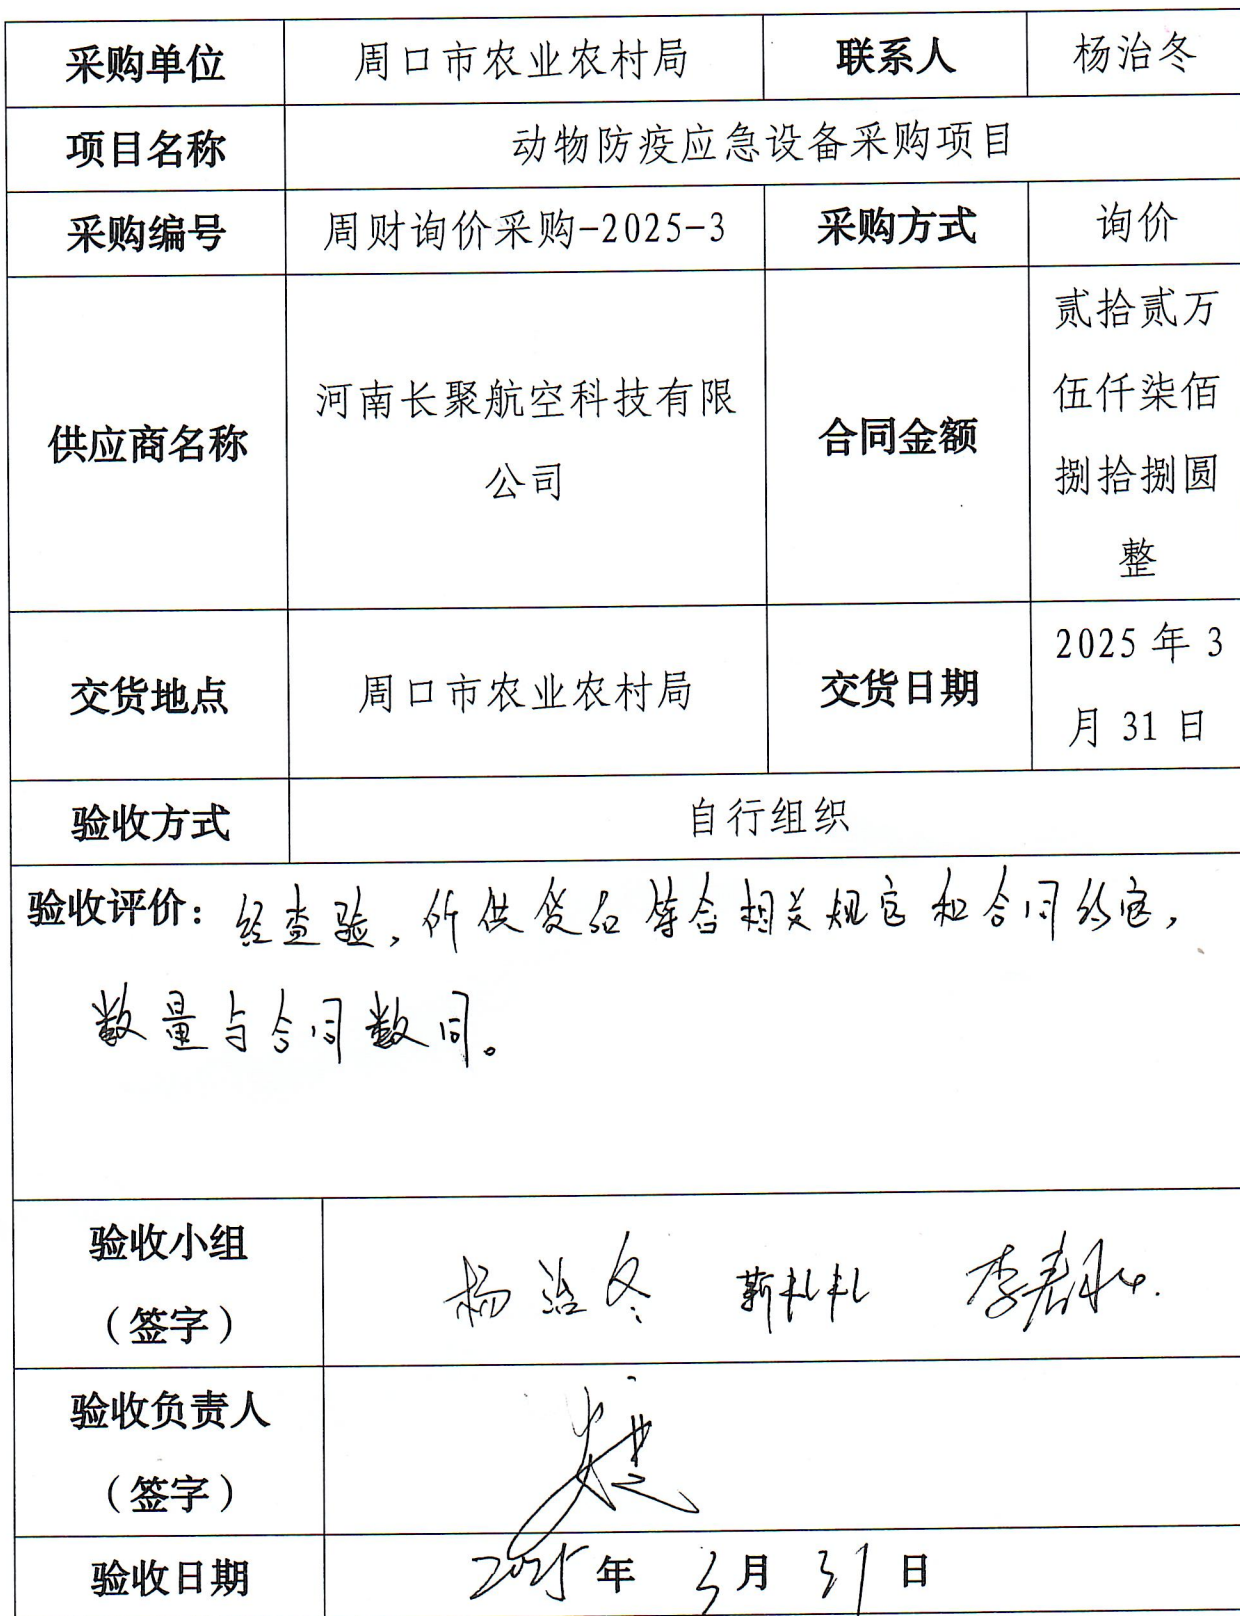 采购单位 周口市农业农村局 联系人 杨治冬
项目名称 动物防疫应急设备采购项目
采购编号 周财询价采购-2025-3 采购方式 询价
供应商名称 河南长聚航空科技有限
公司
合同金额 贰拾贰万
伍仟柒佰
捌拾捌圆
整
交货地点 周口市农业农村局 交货日期 2025 年 3
月 31 日
验收方式 自行组织
验收评价：经查验，所供货品符合相关规定和合同约定，
数量与合同数同。
验收小组
（签字）
杨治冬
验收负责人
（签字）
验收日期 2025年 3月 31日